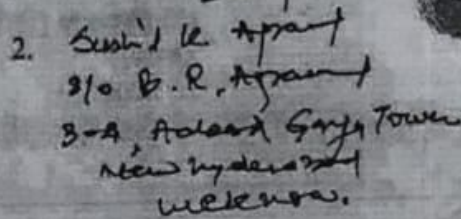 2. Sushil K. Agrawal
S/o B.R. Agrawal
3-A, Adarsh Ganga Tower
New Hyderabad
Lucknow.